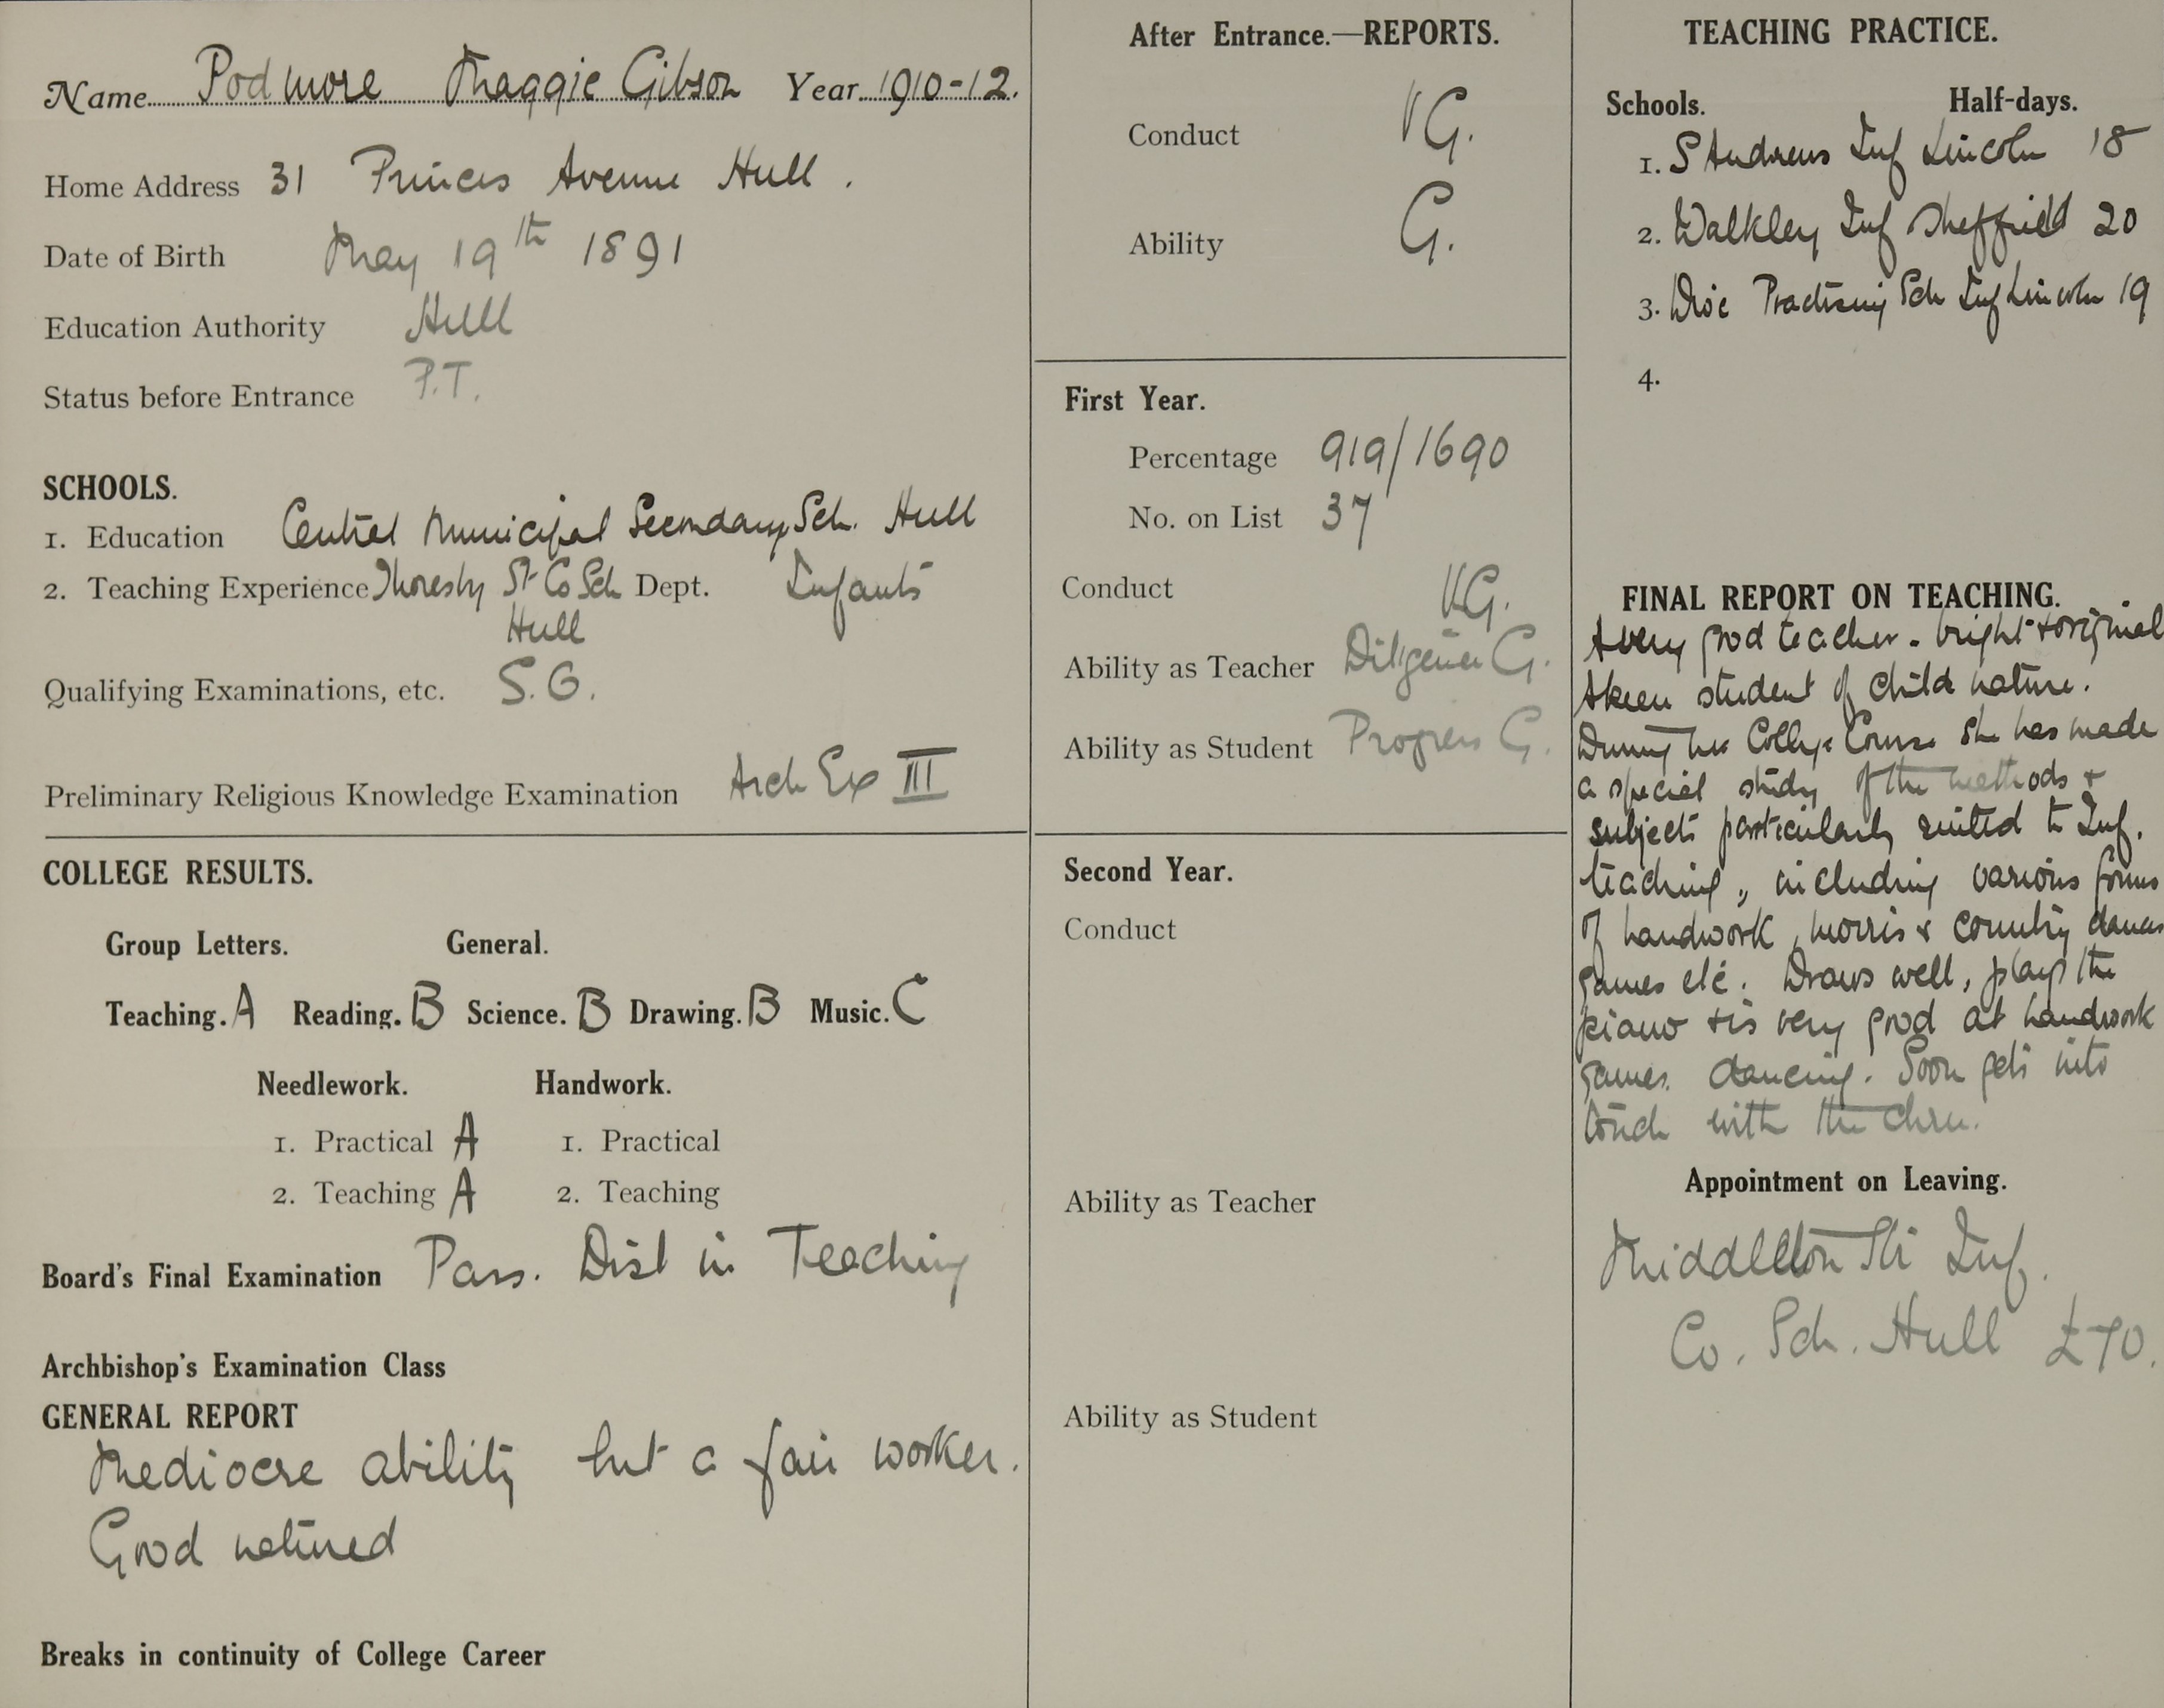 Name Podmore Maggie Gibson Year 1910-12.
Home Address 31 Princes Avenue Hull.
Date of Birth May 19th 1891
Education Authority Hull
Status before Entrance P.T.
SCHOOLS.
1. Education Central Municipal Secondary Sch. Hull
2. Teaching Experience Thoresby St Co Sch Dept. Infants
Hull
Qualifying Examinations, etc. S.G.
Preliminary Religious Knowledge Examination Arch Ex III
COLLEGE RESULTS.
Group Letters. General.
Teaching. A Reading. B Science. B Drawing. B Music. C
Needlework. Handwork.
1. Practical A 1. Practical
2. Teaching A 2. Teaching
Board's Final Examination Pass. Dist in Teaching
Archbishop's Examination Class
GENERAL REPORT
Mediocre ability but a fair worker.
Good natured
Breaks in continuity of College Career
After Entrance.—REPORTS.
Conduct VG.
Ability G.
First Year.
Percentage 919/1690
No. on List 37
Conduct VG.
Ability as Teacher Diligence G.
Ability as Student Progress G.
Second Year.
Conduct
Ability as Teacher
Ability as Student
TEACHING PRACTICE.
Schools. Half-days.
1. S Andrews Inf Lincoln 18
2. Walkley Inf Sheffield 20
3. Dioc Practising Sch Inf Lincoln 19
4.
FINAL REPORT ON TEACHING.
A very good teacher - bright & original.
A keen student of child nature.
During her College Course she has made
a special study of the methods &
subjects particularly suited to Inf.
teaching, including various forms
of handwork, morris & country dances
games etc. Draws well, plays the
piano & is very good at handwork
games. dancing. Soon gets into
touch with the chn.
Appointment on Leaving.
Middleton St Inf.
Co. Sch. Hull £70.